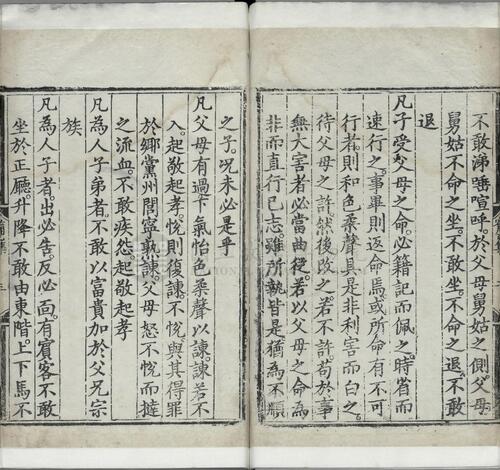 不敢涕唾喧呼。於父母舅姑之側。父母
舅姑不命之坐。不敢坐。不命之退。不敢
退
凡子受父母之命。必籍記而佩之。時省而
速行之。事畢則返命焉。或所命有不可
行者。則和色柔聲。具是非利害而白之。
待父母之許。然後改之。若不許。苟於事
無大害者。必當曲從。若以父母之命為
非。而直行己志。雖所執皆是。猶為不順
之子。况未必是乎
凡父母有過。下氣怡色柔聲以諫。諫若不
入。起敬起孝。悅則復諫。不悅。與其得罪
於鄉黨州閭。寧熟諫。父母怒不悅。而撻
之流血。不敢疾怨。起敬起孝
凡為人子弟者。不敢以富貴加於父兄宗
族
凡為人子者。出必告。反必面。有賓客不敢
坐於正廳。升降不敢由東階。上下馬不